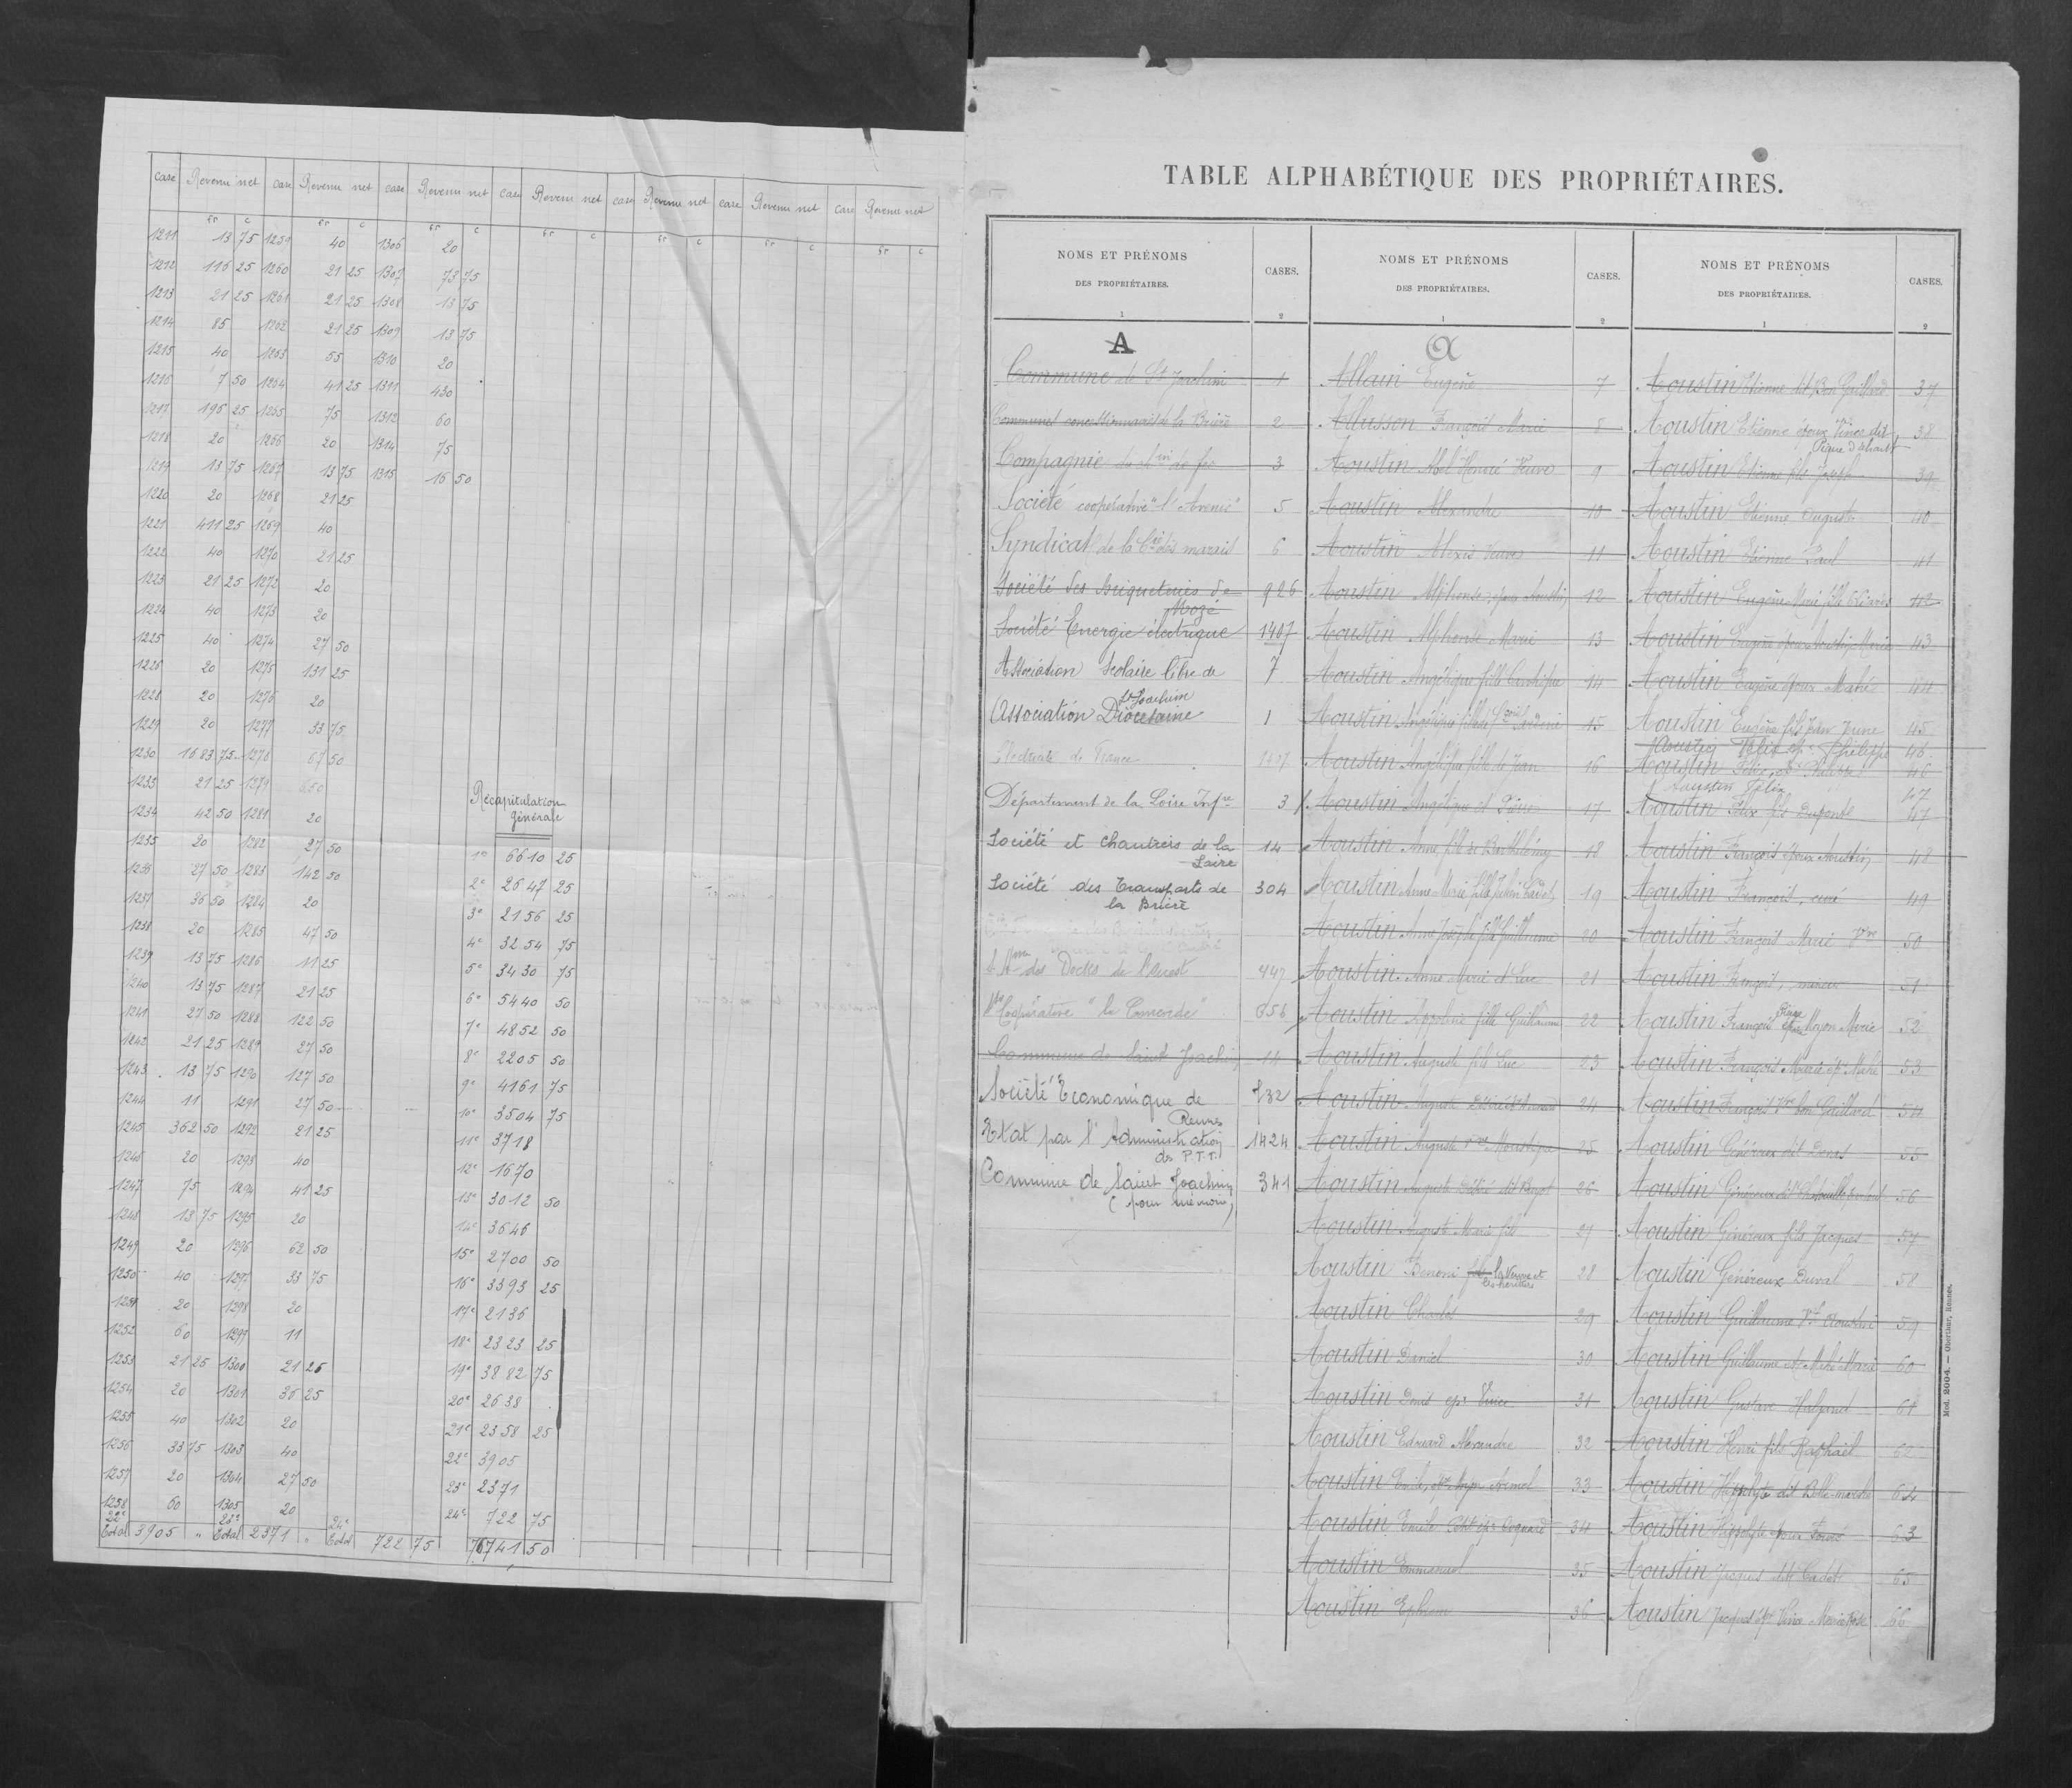 case Revenu net case Revenu net case Revenu net case Revenu net case Revenu net case Revenu net case Revenu net
fr c fr c fr c fr c fr c fr c fr c
1211 13 75 1259 40 1306 20
1212 116 25 1260 21 25 1307 73 75
1213 21 25 1261 21 25 1308 13 75
1214 85 1262 21 25 1309 13 75
1215 40 1263 55 1310 20
1216 7 50 1264 41 25 1311 430
1217 195 25 1265 75 1312 60
1218 20 1266 20 1314 75
1219 13 75 1267 13 75 1315 16 50
1220 20 1268 21 25
1221 411 25 1269 40
1222 40 1270 21 25
1223 21 25 1272 20
1224 40 1273 20
1225 40 1274 27 50
1226 20 1275 131 25
1228 20 1276 20
1229 20 1277 33 75
1230 1683 75 1278 67 50
1233 21 25 1279 650
1234 42 50 1281 20
1235 20 1282 27 50
1236 27 50 1283 142 50
1237 36 50 1284 20
1238 20 1285 47 50
1239 13 75 1286 11 25
1240 13 75 1287 21 25
1241 27 50 1288 122 50
1242 21 25 1289 27 50
1243 13 75 1290 127 50
1244 11 1291 27 50
1245 362 50 1292 21 25
1246 20 1293 40
1247 75 1294 41 25
1248 13 75 1295 20
1249 20 1296 62 50
1250 40 1297 33 75
1251 20 1298 20
1252 60 1299 11
1253 21 25 1300 21 25
1254 20 1301 36 25
1255 40 1302 20
1256 33 75 1303 40
1257 20 1304 27 50
1258 60 1305 20
22e Total 3905 " 23e Total 2371 " 24e Total 722 75
Récapitulation
générale
1e 6610 25
2e 2647 25
3e 2156 25
4e 3254 75
5e 3430 75
6e 5440 50
7e 4852 50
8e 2205 50
9e 4161 75
10e 3504 75
11e 3718
12e 1670
13e 3012 50
14e 3646
15e 2700 50
16e 3393 25
17e 2136
18e 2323 25
19e 3882 75
20e 2638
21e 2358 25
22e 3905
23e 2371
24e 722 75
76741 50
TABLE ALPHABÉTIQUE DES PROPRIÉTAIRES.
NOMS ET PRÉNOMS
DES PROPRIÉTAIRES.
CASES.
1 2
A
Commune de St Joachim 1
Communes concessionnaires de la Brière 2
Compagnie du Chin de fer 3
Société coopérative "l'Avenir" 5
Syndicat de la Cie des marais 6
Société des Briqueteries de
Mozé 926
Société Energie électrique 1407
Association Scolaire libre de
St Joachim 7
Association Diocésaine 1
Electricité de France 1407
Département de la Loire Infre 3
Société et Chantiers de la
Loire 14
Société des Transports de
la Brière 304
des Docks de l'Ouest 447
Sté Coopérative "la Concorde" 656
Commune de Saint Joachim 14
Société Economique de
Rennes 732
Etat par l'Administration
des P.T.T. 1424
Commune de Saint Joachim
(pour mémoire) 341
NOMS ET PRÉNOMS
DES PROPRIÉTAIRES.
CASES.
1 2
A
Allain Eugène 7
Allusson François Marie 8
Aoustin Abel Honoré Veuve 9
Aoustin Alexandre 10
Aoustin Alexis Veuve 11
Aoustin Alphonse, époux Aoustin 12
Aoustin Alphonse Marie 13
Aoustin Angélique fille 14
Aoustin Angélique 15
Aoustin Angélique fille de Jean 16
Aoustin Angélique et Désiré 17
Aoustin Anne fille de Barthélémy 18
Aoustin Anne Marie fille Julien Cadet 19
Aoustin Anne Josèphe fille Guillaume 20
Aoustin Anne Marie et Luc 21
Aoustin Appoline fille Guillaume 22
Aoustin Auguste fils Luc 23
Aoustin Auguste Désiré 24
Aoustin Auguste Moustique 25
Aoustin Auguste Désiré dit 26
Aoustin Auguste Marie fils 27
Aoustin Benoni fils la Veuve et
les héritiers 28
Aoustin Charles 29
Aoustin Daniel 30
Aoustin Denis ép. Vince 31
Aoustin Edouard Alexandre 32
Aoustin Emile, 33
Aoustin Emile 34
Aoustin Emmanuel 35
Aoustin Ephrem 36
NOMS ET PRÉNOMS
DES PROPRIÉTAIRES.
CASES.
1 2
Aoustin Etienne dit Bon Guillard 37
Aoustin Etienne époux Vince dit 38
Aoustin Etienne fils Joseph 39
Aoustin Etienne Auguste 40
Aoustin Etienne Paul 41
Aoustin Eugène Marie, 42
Aoustin Eugène époux Aoustin Marie 43
Aoustin Eugène époux Mahé 44
Aoustin Eugène fils Jean 45
Aoustin Félix ép. Philippe 46
Aoustin Félix ép. Philippe 46
Aoustin Félix 47
Aoustin Félix fils Dupont 47
Aoustin François époux Aoustin 48
Aoustin François, curé 49
Aoustin François Marie Vve 50
Aoustin François, 51
Aoustin François époux Moyon Marie 52
Aoustin François Marie ép. Mahé 53
Aoustin François Vve bon Guillard 54
Aoustin Généreux dit 55
Aoustin Généreux dit 56
Aoustin Généreux fils Jacques 57
Aoustin Généreux Duval 58
Aoustin Guillaume Vf Aoustin 59
Aoustin Guillaume ép. Mahé Marie 60
Aoustin Gustave 61
Aoustin Henri fils Raphaël 62
Aoustin Hippolyte dit 64
Aoustin Hippolyte époux 63
Aoustin Jacques dit Cadet 65
Aoustin Jacques ép. Vince Marie Rose 66
Mod. 2004. — Oberthur, Rennes.